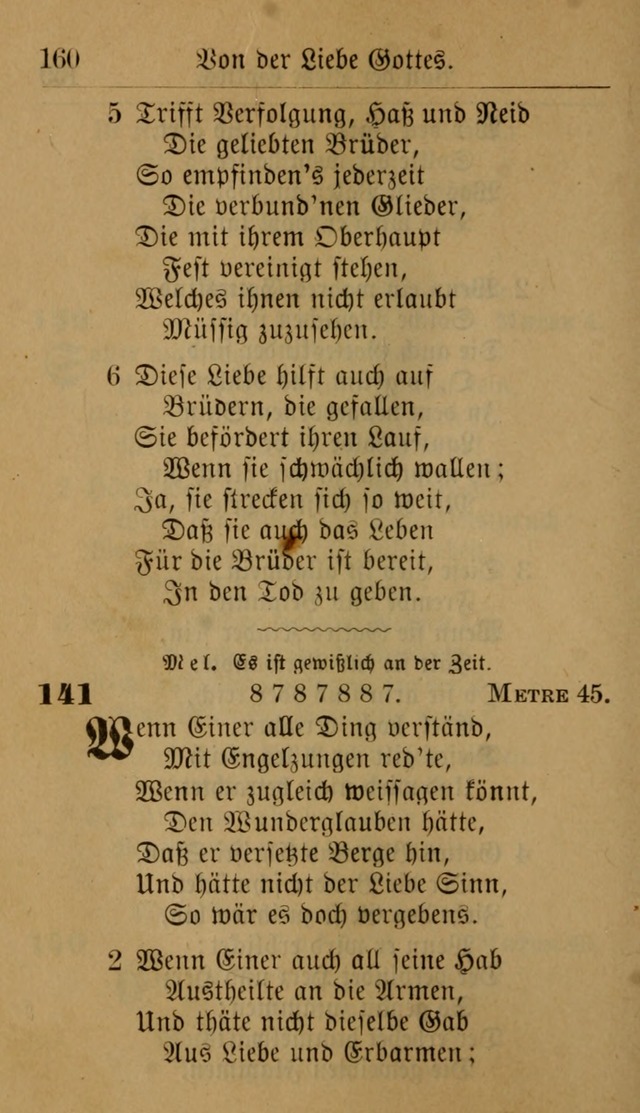 160 Von der Liebe Gottes.
5 Trifft Verfolgung, Haß und Neid
Die geliebten Brüder,
So empfinden's jederzeit
Die verbund'nen Glieder,
Die mit ihrem Oberhaupt
Fest vereinigt stehen,
Welches ihnen nicht erlaubt
Müssig zuzusehen.
6 Diese Liebe hilft auch auf
Brüdern, die gefallen,
Sie befördert ihren Lauf,
Wenn sie schwächlich wallen;
Ja, sie strecken sich so weit,
Daß sie auch das Leben
Für die Brüder ist bereit,
In den Tod zu geben.
Mel. Es ist gewißlich an der Zeit.
141 8 7 8 7 8 8 7. METRE 45.
Wenn Einer alle Ding verständ,
Mit Engelzungen red'te,
Wenn er zugleich weissagen könnt,
Den Wunderglauben hätte,
Daß er versetzte Berge hin,
Und hätte nicht der Liebe Sinn,
So wär es doch vergebens.
2 Wenn Einer auch all seine Hab
Austheilte an die Armen,
Und thäte nicht dieselbe Gab
Aus Liebe und Erbarmen;